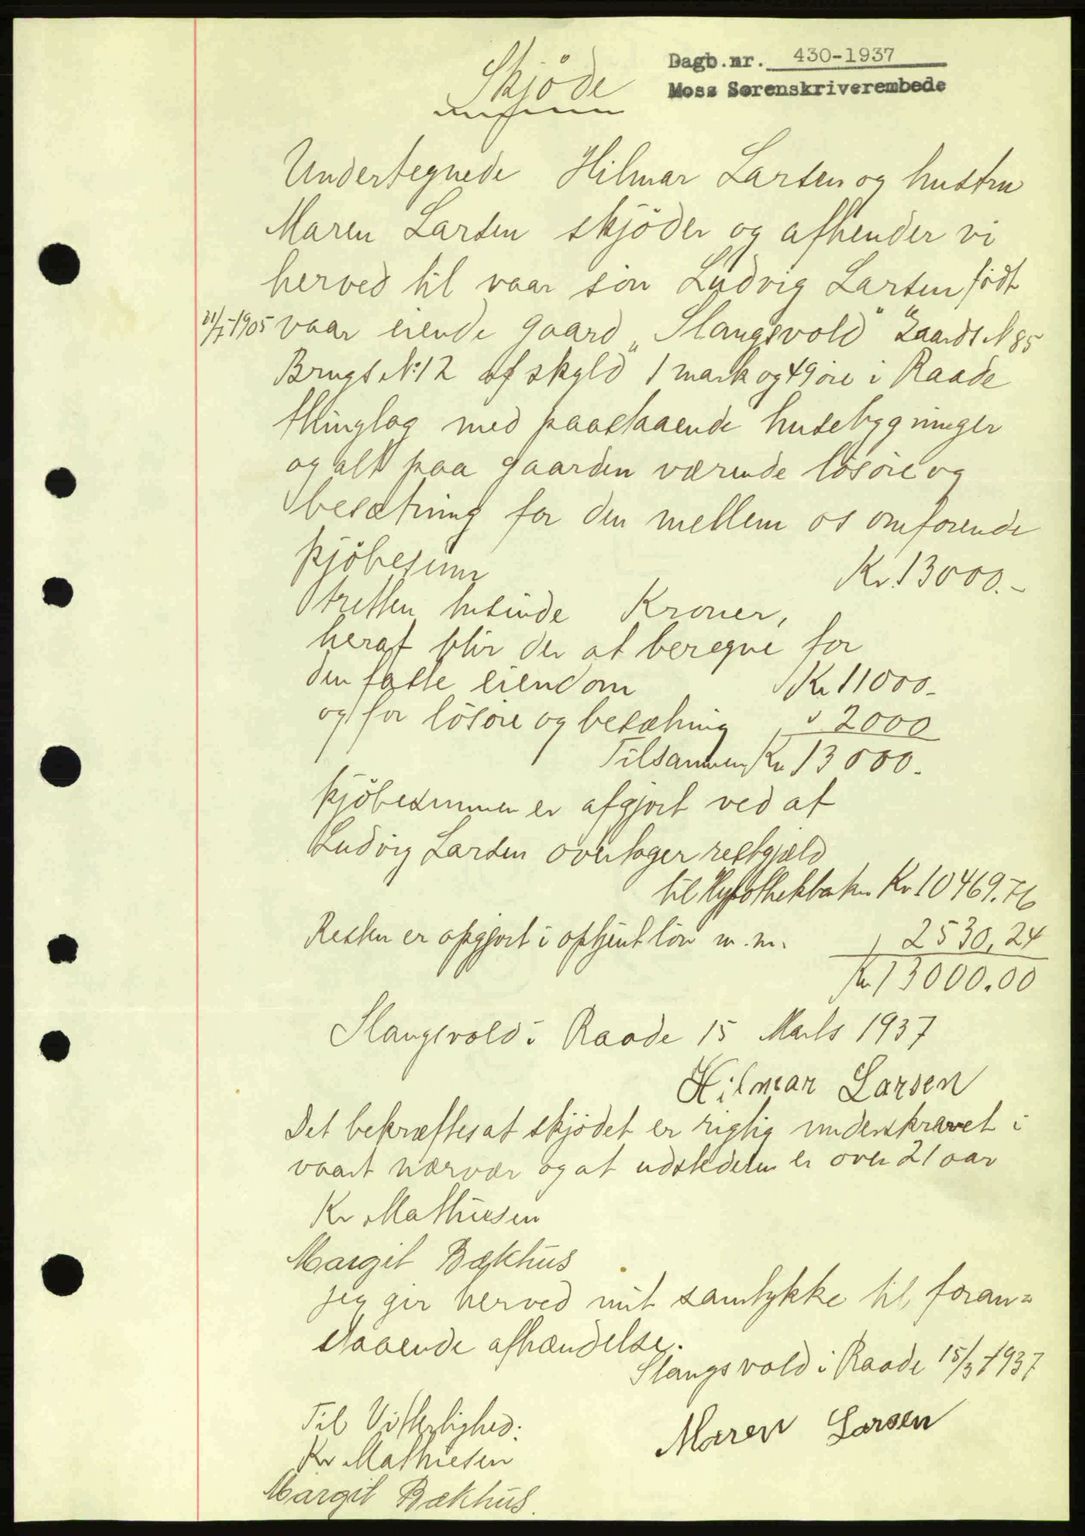 Skjøde
Dagb.nr. 430-1937
Moss Sorenskriverembede
Undertegnede Hilmar Larsen og hustru
Maren Larsen skjöder og afhender vi
herved til vaar sön Ludvig Larsen født
1905 vaar eiende gaard „Slangsvold" Gaards N 85
Brugs №12 af skyld 1 mark og 49 øre i Raade
thinglag med paastaaende husebygninger
og alt paa gaarden værende lösöre og
besætning for den mellem os omforende
kjöbesum Kr. 13000.-
tretten tusinde Kroner,
heraf blir der at beregne for
den faste eiendom Kr 11000-
og for lösöre og besætning " 2000
Tilsammen Kr 13000.
kjöbesummen er afgjort ved at
Ludvig Larsen overtager restgjæld
til Hypothekbanken Kr 10469.76
Resten er opgjort i optjent lön m.m. " 2530,24
Kr 13000.00
Slangsvold i Raade 15 Marts 1937
Hilmar Larsen
Det bekræftes at skjödet er rigtig underskrevet i
vaart nærvær og at udstederen er over 21 aar
Kr Mathiesen
Margit Bækhus
jeg gir herved mit samtykke til foran=
staaende afhændelse.
Slangsvold i Raade 15/3-1937
Maren Larsen
Til Vitterlighed:
Kr Mathiesen
Margit Bækhus.